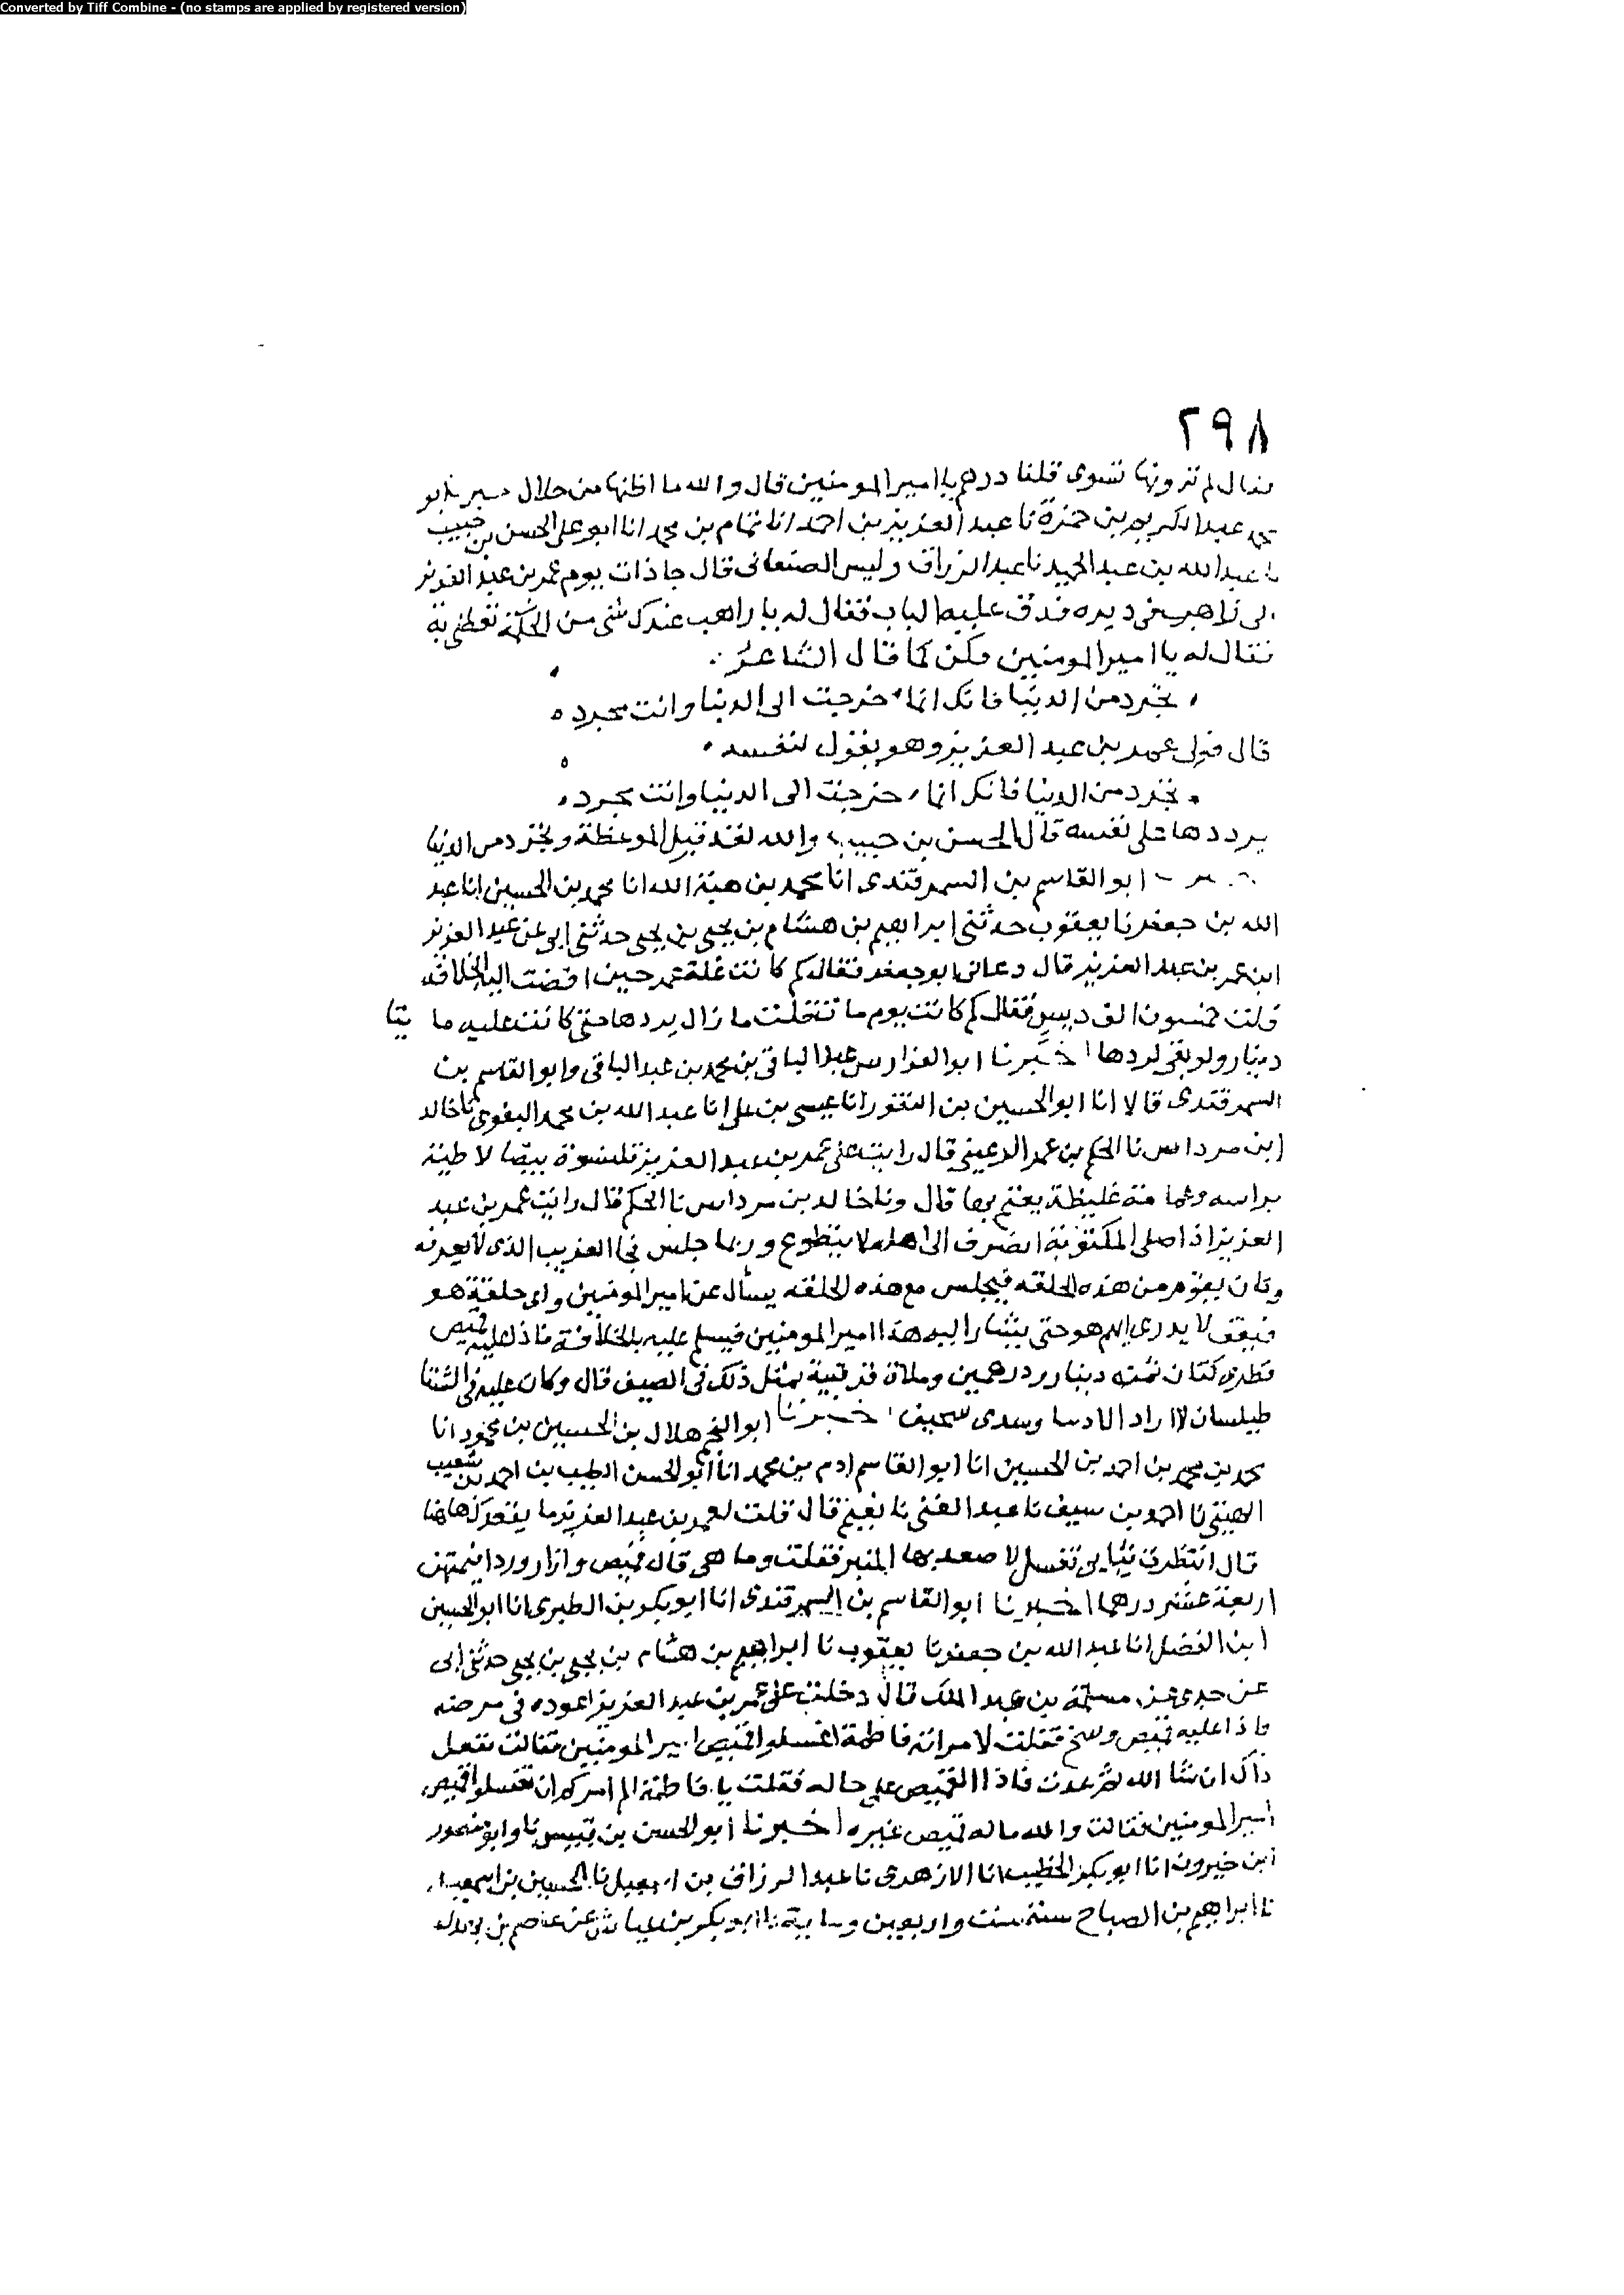 Converted by Tiff Combine - (no stamps are applied by registered version)
٢٩٨
فقال لم ترونها تسوى قلنا درهم يا امير المومنين قال والله ما اظنها من حلال ابو
عبد الكريم بن حمزة نا عبد العزيز بن احمد انا تمام بن محمد انا ابو علي الحسن بن حبيب
عبد الله بن عبد الحميد نا عبد الرزاق وليس الصنعانى قال جا ذات يوم عمر بن عبد العزيز
الى راهب فى ديره فدق عليه الباب فقال له يا راهب عندك شى من الحكمة تعظنى به
فقال له يا امير المومنين فكن كما قال الشاعر
تجرد من الدنيا فانك انما خرجت الى الدنيا وانت مجرد
قال فولى عمر بن عبد العزيز وهو يقول لنفسه
تجرد من الدنيا فانك انما خرجت الى الدنيا وانت مجرد
يرددها على نفسه قال الحسن بن حبيب والله لقد قبل الموعظة وتجرد من الدنيا
ابو القاسم بن السمرقندى انا محمد بن هبة الله انا محمد بن الحسين انا عبد
الله بن جعفر نا يعقوب حدثنى ابراهيم بن هشام بن يحيى بن يحيى حدثنى ابى عن عبد العزيز
ابن عمر بن عبد العزيز قال دعانى ابو جعفر فقال كم كانت غلة عمر حين افضت اليه الخلافة
قلت خمسون الف دينر فقال كم كانت يوم مات قلت ما زال يردها حتى كانت عليه ما يتا
دينار ولو بقى لردها اخبرنا ابو الفوارس عبد الباقى بن محمد بن عبد الباقى وابو القاسم بن
السمرقندى قالا انا ابو الحسين بن النقور انا عيسى بن على انا عبد الله بن محمد البغوى نا خالد
ابن مرداس نا الحكم بن عمر الرعينى قال رايت على عمر بن عبد العزيز قلنسوة بيضا لاطية
براسه وعمامته غليظة يعتم بها قال ونا خالد بن مرداس نا الحكم قال رايت عمر بن عبد
العزيز اذا صلى المكتوبة انصرف الى اهله لا يتطوع وربما جلس فجا الغريب الذى لا يعرفه
وكان يقوم من هذه الحلقه فيجلس مع هذه الحلقه يسأل عن امير المومنين واى حلقة هو
فيقف لا يدرى ايهم هو حتى يشار اليه هذا امير المومنين فيسلم عليه بالخلافة فاذا عليه قميص
قطرى كتان ثمنه دينار ودرهمين وملاة قرقبية بمثل ذلك فى الصيف قال وكان عليه فى الشتا
طيلسان وسدى سحيف اخبرنا ابو النجم هلال بن الحسين بن محمود انا
محمد بن محمد بن احمد بن الحسين انا ابو القاسم ادم بن محمد انا ابو الحسن الطيب بن احمد بن شعيب
الهيتى نا احمد بن سيف نا عبد الغنى نا نعيم قال قلت لعمر بن عبد العزيز ما يقعدك هاهنا
قال انتظرت ثيابى تغسل لاصعد بها المنبر فقلت وما هى قال قميص وازار وردا قيمتهن
اربعة عشر درهما اخبرنا ابو القاسم بن السمرقندى انا ابو بكر بن الطبرى انا ابو الحسين
ابن الفضل انا عبد الله بن جعفر نا يعقوب نا ابراهيم بن هشام بن يحيى بن يحيى حدثنى ابى
عن جدى عن مسلمة بن عبد الملك قال دخلت على عمر بن عبد العزيز اعوده فى مرضه
فاذا عليه قميص وسخ فقلت لامراته فاطمة اغسلوا قميص امير المومنين فقالت نفعل
ذاك ان شا الله ثم عدت فاذا القميص على حاله فقلت يا فاطمة الم امركم ان تغسلوا قميص
امير المومنين فقالت والله ماله قميص غيره اخبرنا ابو الحسن بن قبيس نا وابو منصور
ابن خيرون انا ابو بكر الخطيب انا الازهرى نا عبد الرزاق بن اسمعيل نا الحسين بن اسمعيل
نا ابراهيم بن الصباح سنة ست واربعين ومايه نا ابو بكر بن عياش عن عاصم بن بهدله